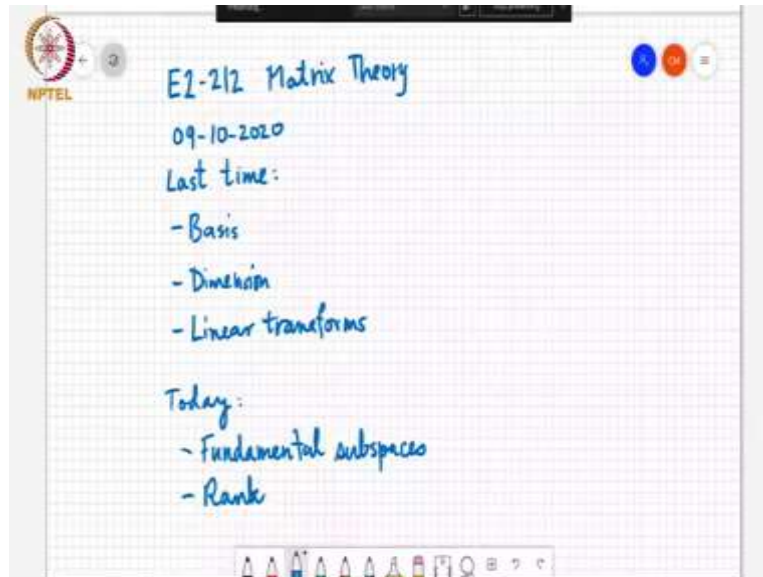 NPTEL
E2-212 Matrix Theory
09-10-2020
Last time:
- Basis
- Dimension
- Linear transforms
Today:
- Fundamental subspaces
- Rank